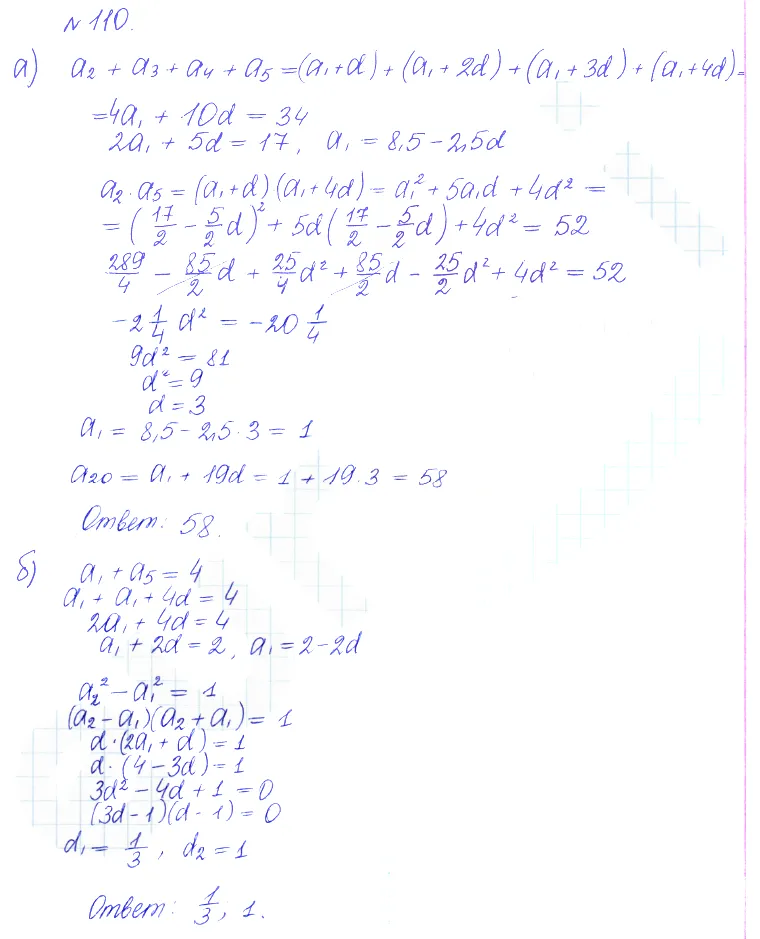 № 110.
а) a₂ + a₃ + a₄ + a₅ = (a₁ + d) + (a₁ + 2d) + (a₁ + 3d) + (a₁ + 4d) =
= 4a₁ + 10d = 34
2a₁ + 5d = 17, a₁ = 8,5 − 2,5d
a₂ · a₅ = (a₁ + d)(a₁ + 4d) = a₁² + 5a₁d + 4d² =
= (17/2 − 5/2 d)² + 5d(17/2 − 5/2 d) + 4d² = 52
289/4 − 85/2 d + 25/4 d² + 85/2 d − 25/2 d² + 4d² = 52
−2 1/4 d² = −20 1/4
9d² = 81
d² = 9
d = 3
a₁ = 8,5 − 2,5 · 3 = 1
a₂₀ = a₁ + 19d = 1 + 19 · 3 = 58
Ответ: 58.
б) a₁ + a₅ = 4
a₁ + a₁ + 4d = 4
2a₁ + 4d = 4
a₁ + 2d = 2, a₁ = 2 − 2d
a₂² − a₁² = 1
(a₂ − a₁)(a₂ + a₁) = 1
d · (2a₁ + d) = 1
d · (4 − 3d) = 1
3d² − 4d + 1 = 0
(3d − 1)(d − 1) = 0
d₁ = 1/3, d₂ = 1
Ответ: 1/3, 1.